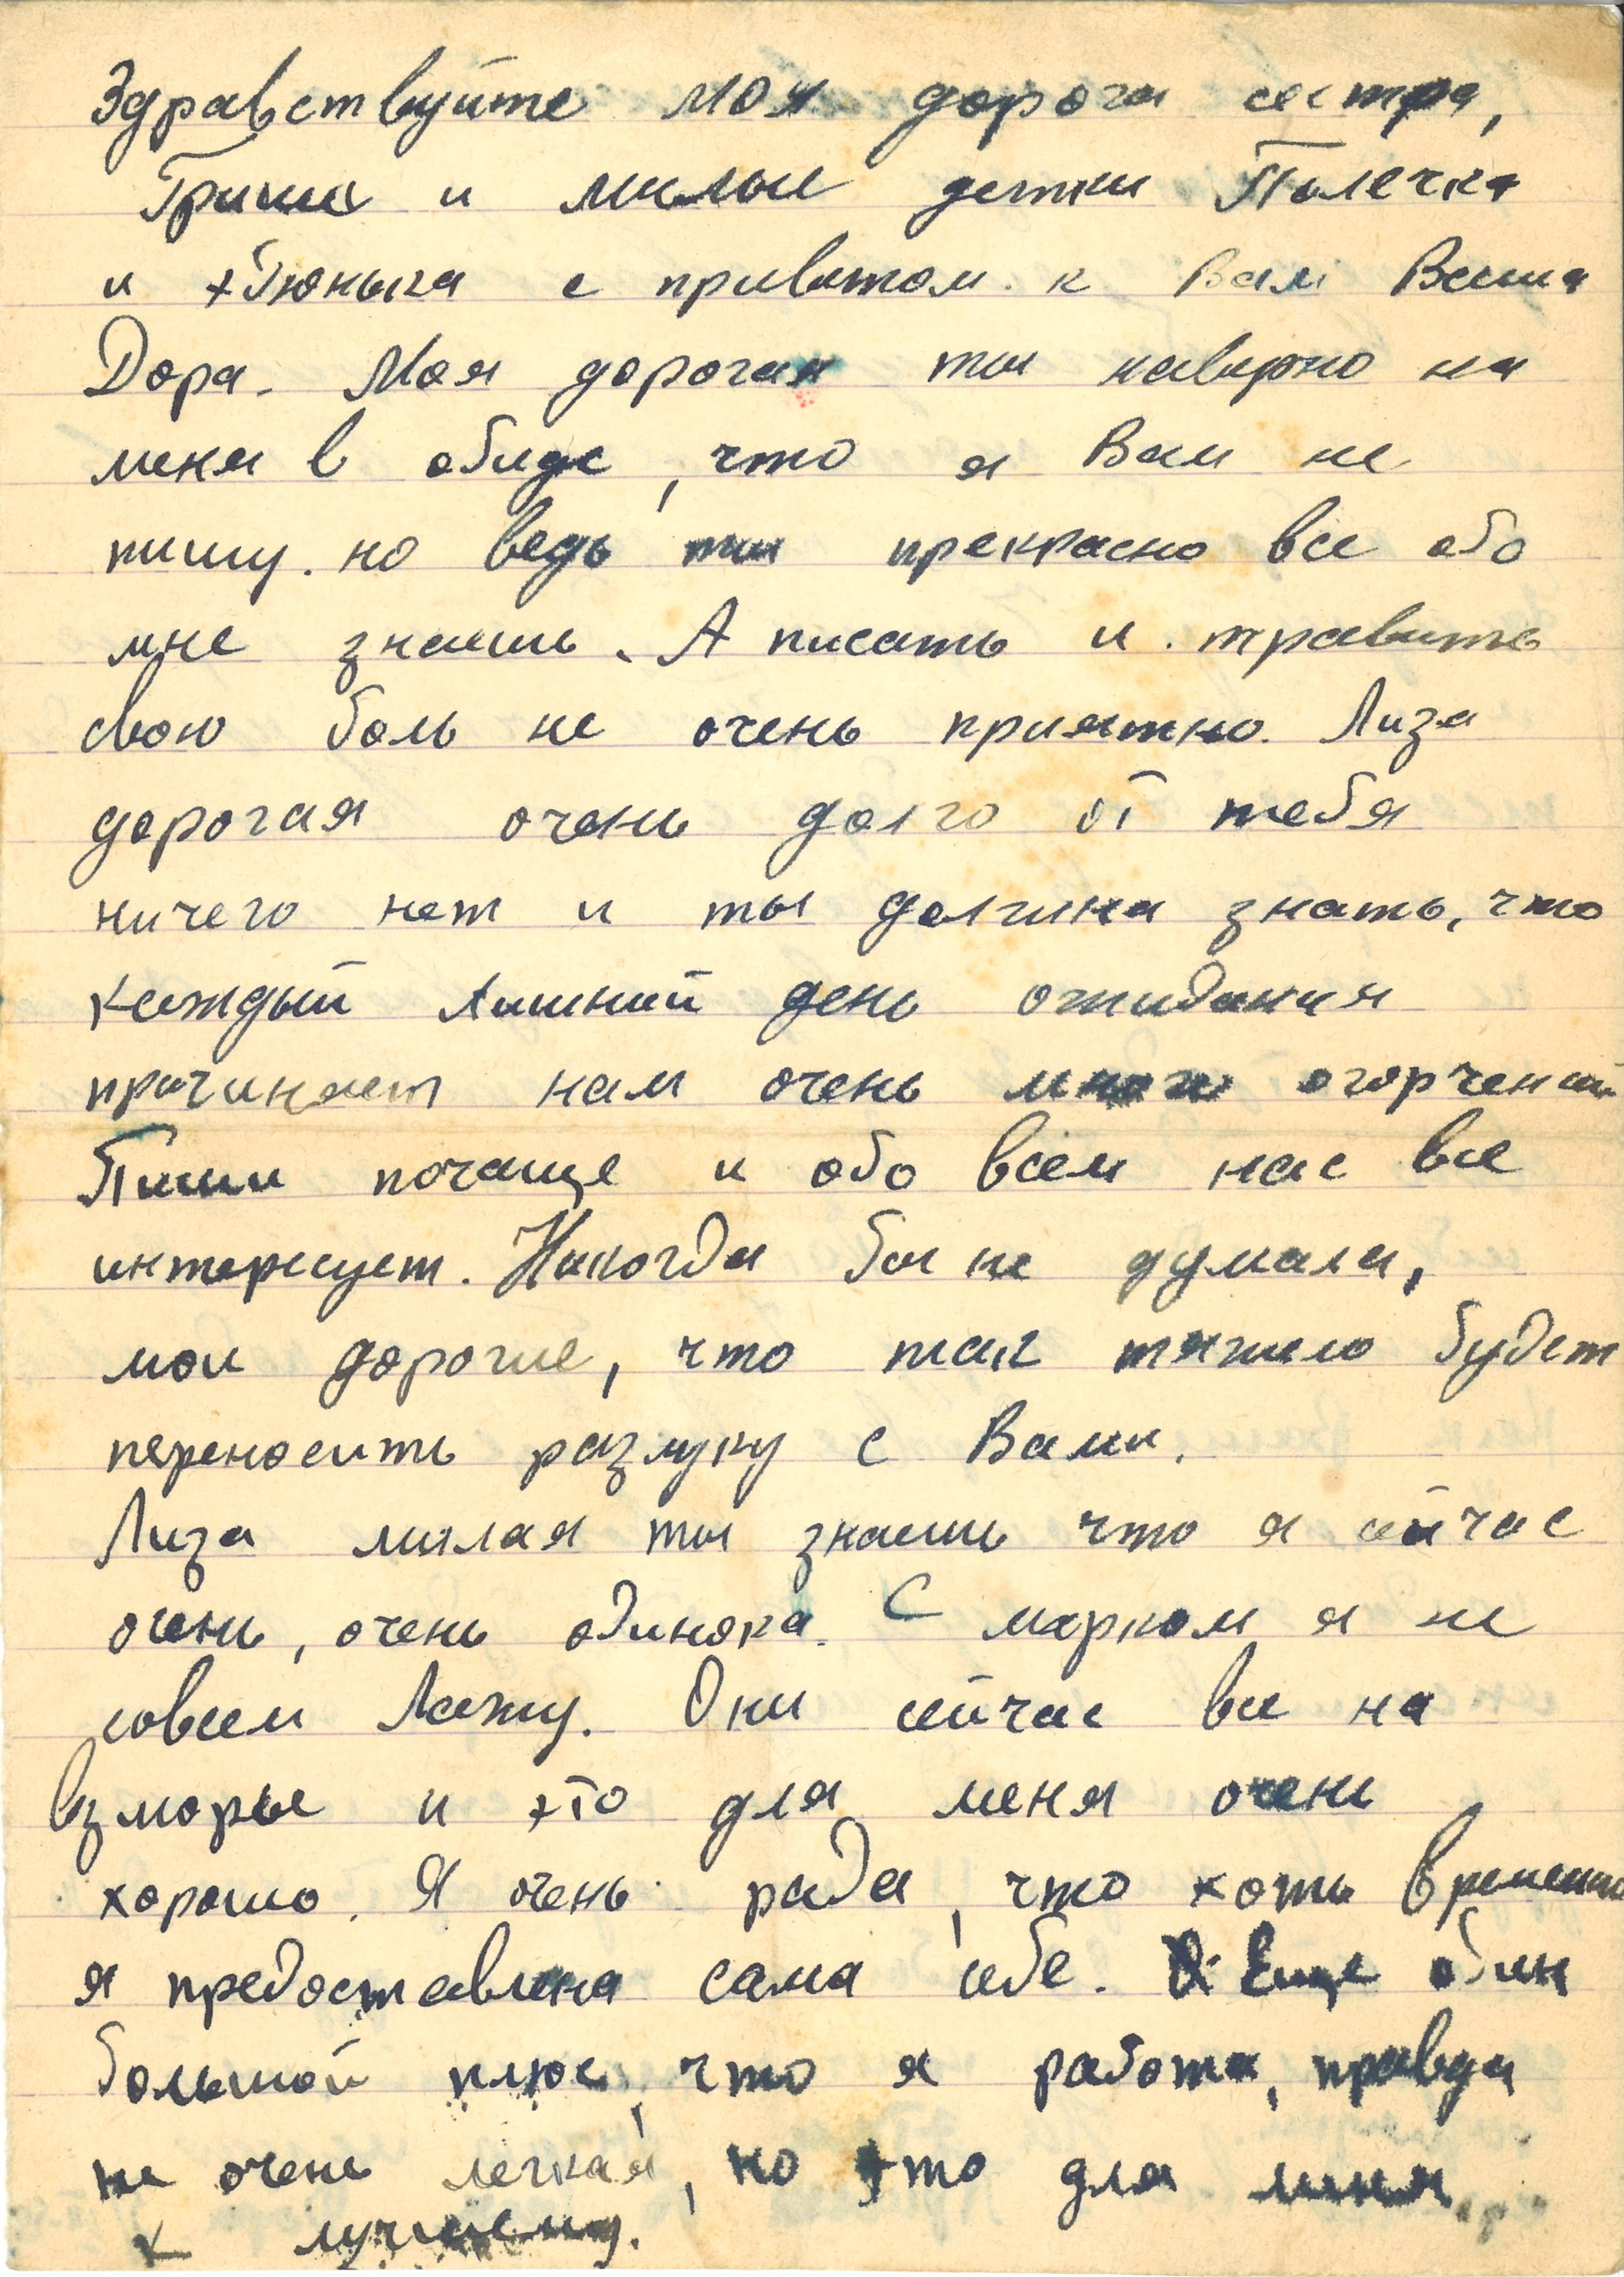 Здравствуйте моя дорога сестра,
Гриша и милые детки Полечка
и с приветом к Вам Ваша
Дора. Моя дорогая ты наверно на
меня в обиде, что я Вам не
пишу. но ведь ты прекрасно все обо
мне знаешь. А писать и травить
свою боль не очень приятно. Лиза
дорогая очень долго от тебя
ничего нет и ты должна знать, что
каждый лишний день ожидания
причиняет нам очень много огорчений
Пиши почаще и обо всем нас все
интересует. Никогда бы не думала,
мои дорогие, что так тяжело будет
переносить разлуку с Вами.
Лиза милая ты знаешь что я сейчас
очень, очень одинока. С марком я не
совсем лажу. Они сейчас все на
взморье и это для меня очень
хорошо. Я очень рада, что хоть временно
я предоставлена сама себе. Еще один
большой плюс, что я работа, правда
не очень легкая, но это для меня
к лучшему.